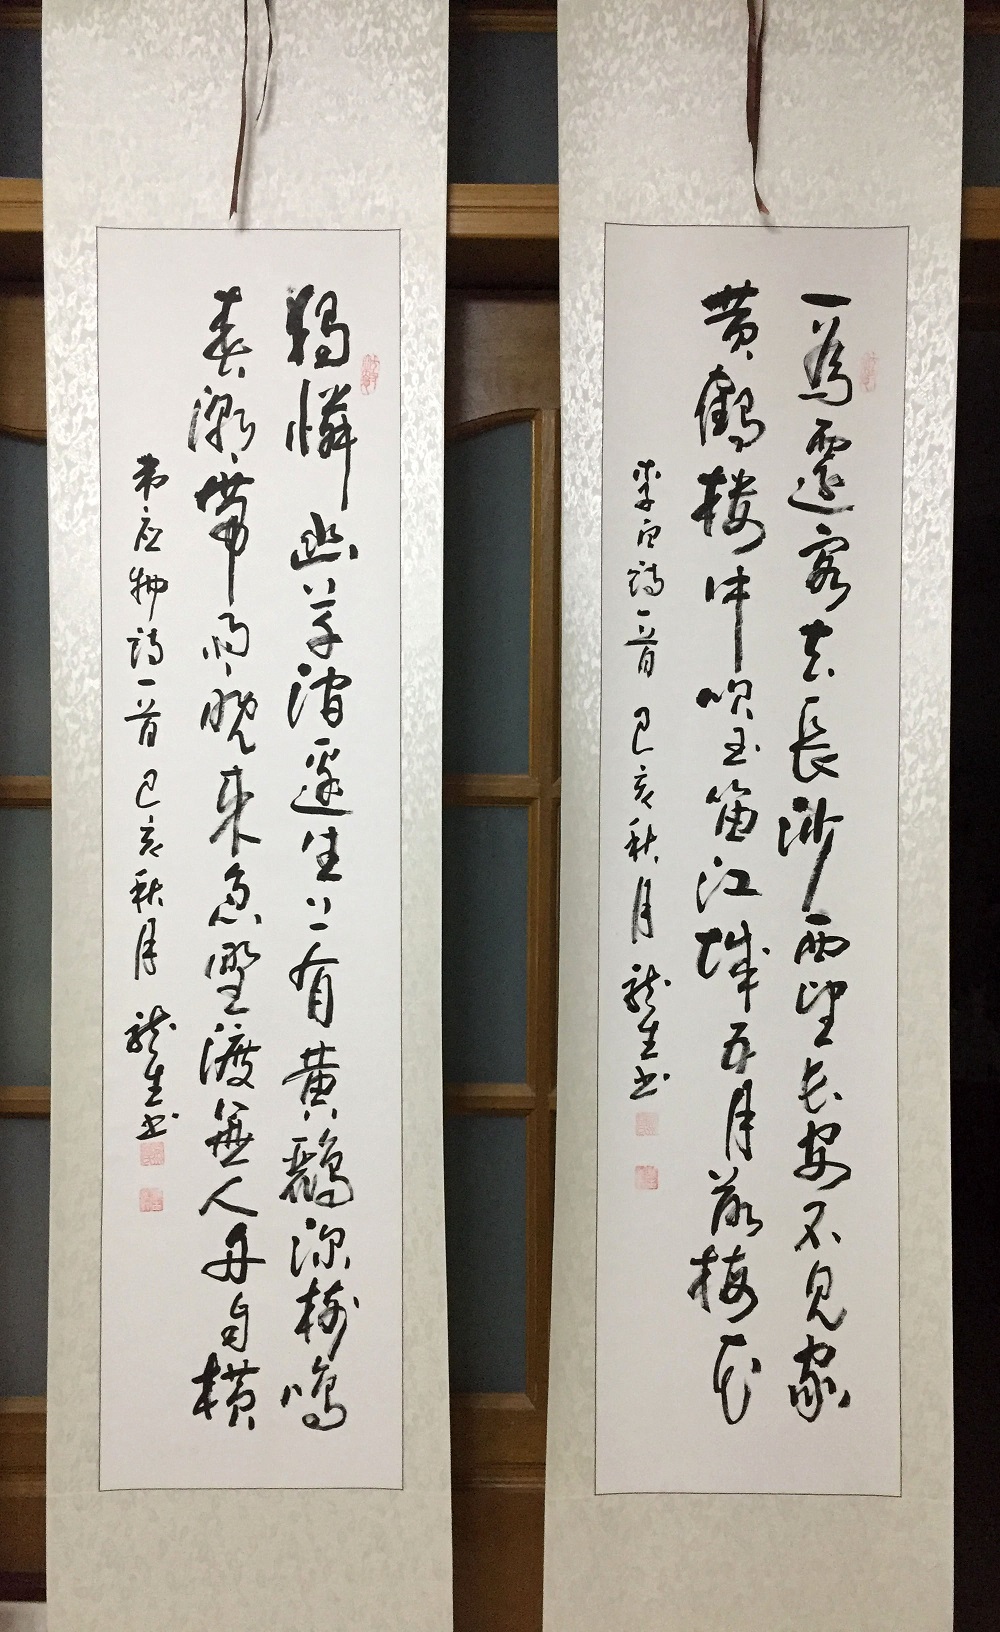 一為遷客去長沙西望长安不見家
黄鶴楼中吹玉笛江城五月落梅花
李白詩一首 己亥秋月 龍生书
獨憐幽草澗邊生上有黄鸝深樹鳴
春潮带雨晚来急野渡無人舟自横
韦应物詩一首 己亥秋月 龍生书